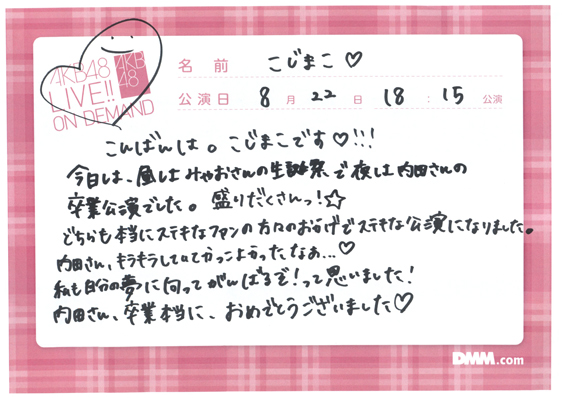 AKB48
LIVE!!
ON DEMAND
AKB
48
名前 こじまこ♡
公演日 8月22日 18:15公演
こんばんは。こじまこです♡!!!
今日は、昼はみゃおさんの生誕祭で夜は内田さんの
卒業公演でした。盛りだくさんっ！☆
どちらも本当にステキなファンの方々のおかげでステキな公演になりました。
内田さん、キラキラしていてかっこよかったなぁ...♡
私も自分の夢に向ってがんばるぞ！って思いました！
内田さん、卒業本当に、おめでとうございました♡
DMM.com